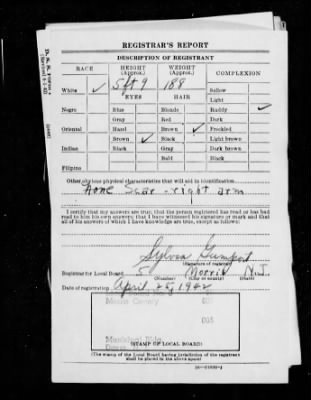 REGISTRAR'S REPORT
DESCRIPTION OF REGISTRANT
RACE HEIGHT (Approx.) WEIGHT (Approx.) COMPLEXION
White ✓ 5 ft 9 188 Sallow
EYES HAIR Light
Negro Blue Blonde Ruddy ✓
Gray Red Dark
Oriental Hazel Brown ✓ Freckled
Brown ✓ Black Light brown
Indian Black Gray Dark brown
Bald Black
Filipino
Other obvious physical characteristics that will aid in identification
None Scar - right arm
I certify that my answers are true; that the person registered has read or has had
read to him his own answers; that I have witnessed his signature or mark and that
all of his answers of which I have knowledge are true, except as follows:
Sylvia
(Signature of registrar)
Registrar for Local Board 5 Morris N.J.
(Number) (City or county) (State)
Date of registration April 25, 1942
Morris County
Municipal Bldg.
(STAMP OF LOCAL BOARD)
(The stamp of the Local Board having jurisdiction of the registrant
shall be placed in the above space)